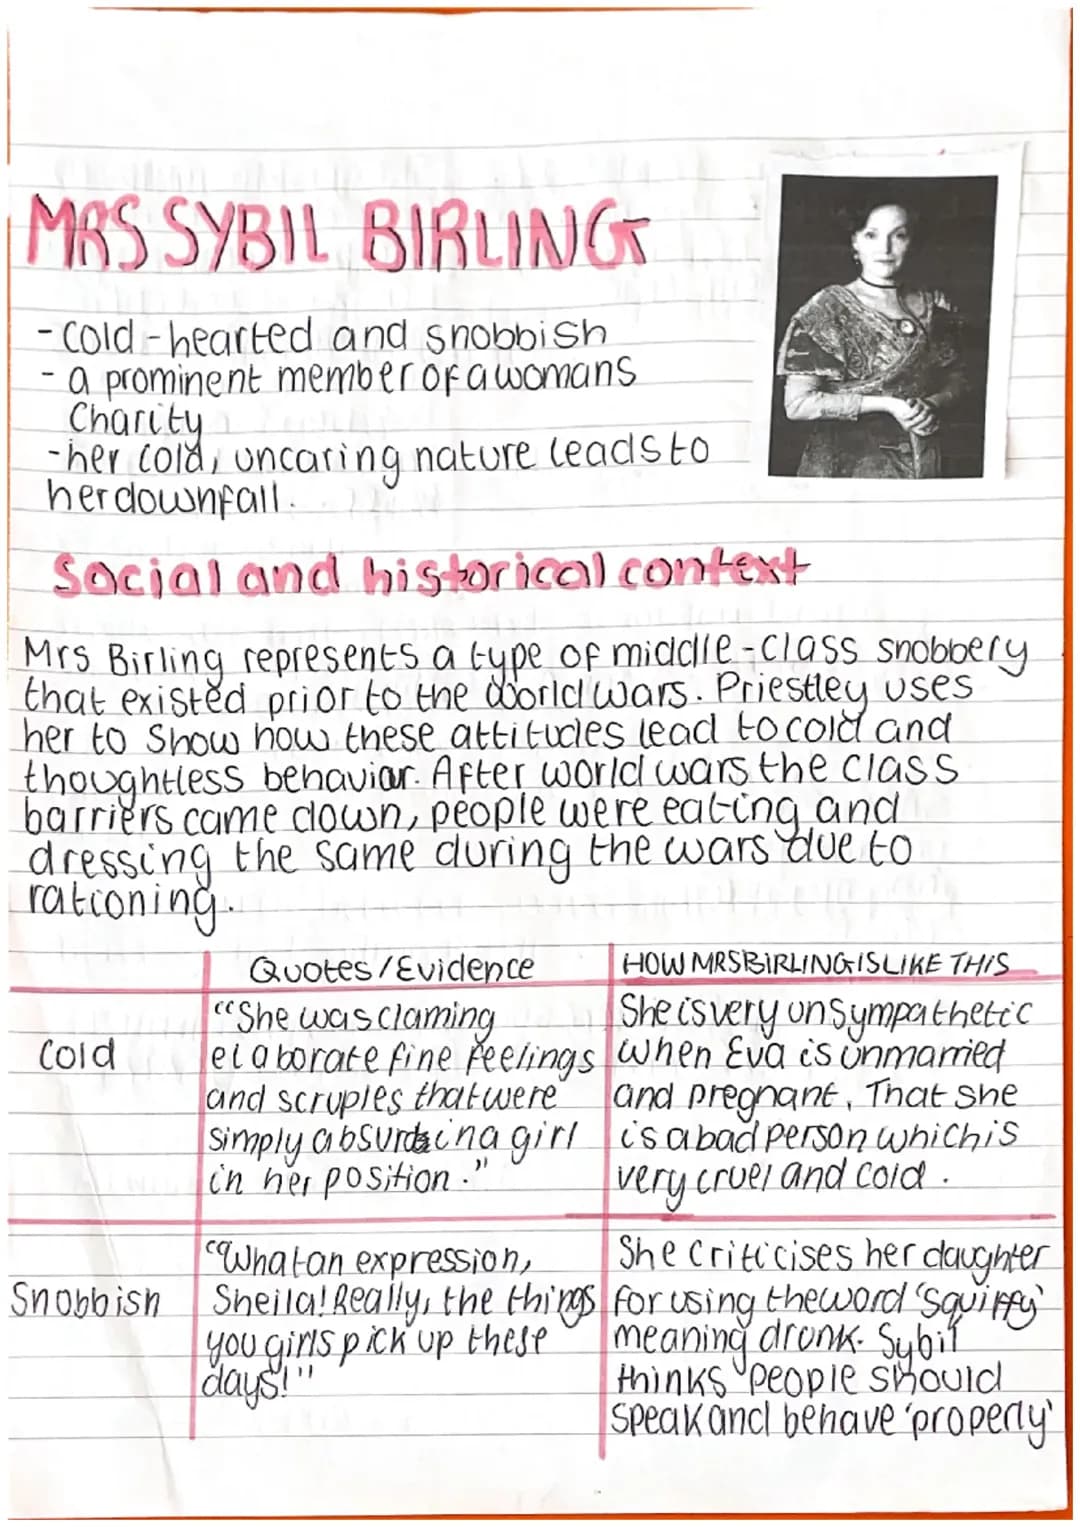 MRS SYBIL BIRLING
- cold-hearted and snobbish
- a prominent member of a womans
Charity
- her cold, uncaring nature leads to
her downfall.
Social and historical context
Mrs Birling represents a type of middle-class snobbery
that existed prior to the world wars. Priestley uses
her to show how these attitudes lead to cold and
thoughtless behaviar. After world wars the class
barriers came down, people were eating and
dressing the same during the wars due to
rationing.
Quotes/Evidence
HOW MRS BIRLING IS LIKE THIS
Cold
"She was claming
elaborate fine feelings
and scruples that were
simply absurd in a girl
in her position."
She is very unsympathetic
when Eva is unmarried
and pregnant. That she
is a bad person which is
very cruel and cold.
Snobbish
"What an expression,
Sheila! Really, the things
you girls pick up these
days!"
She criticises her daughter
for using the word 'squiffy'
meaning drunk. Sybil
thinks people should
speak and behave 'properly'